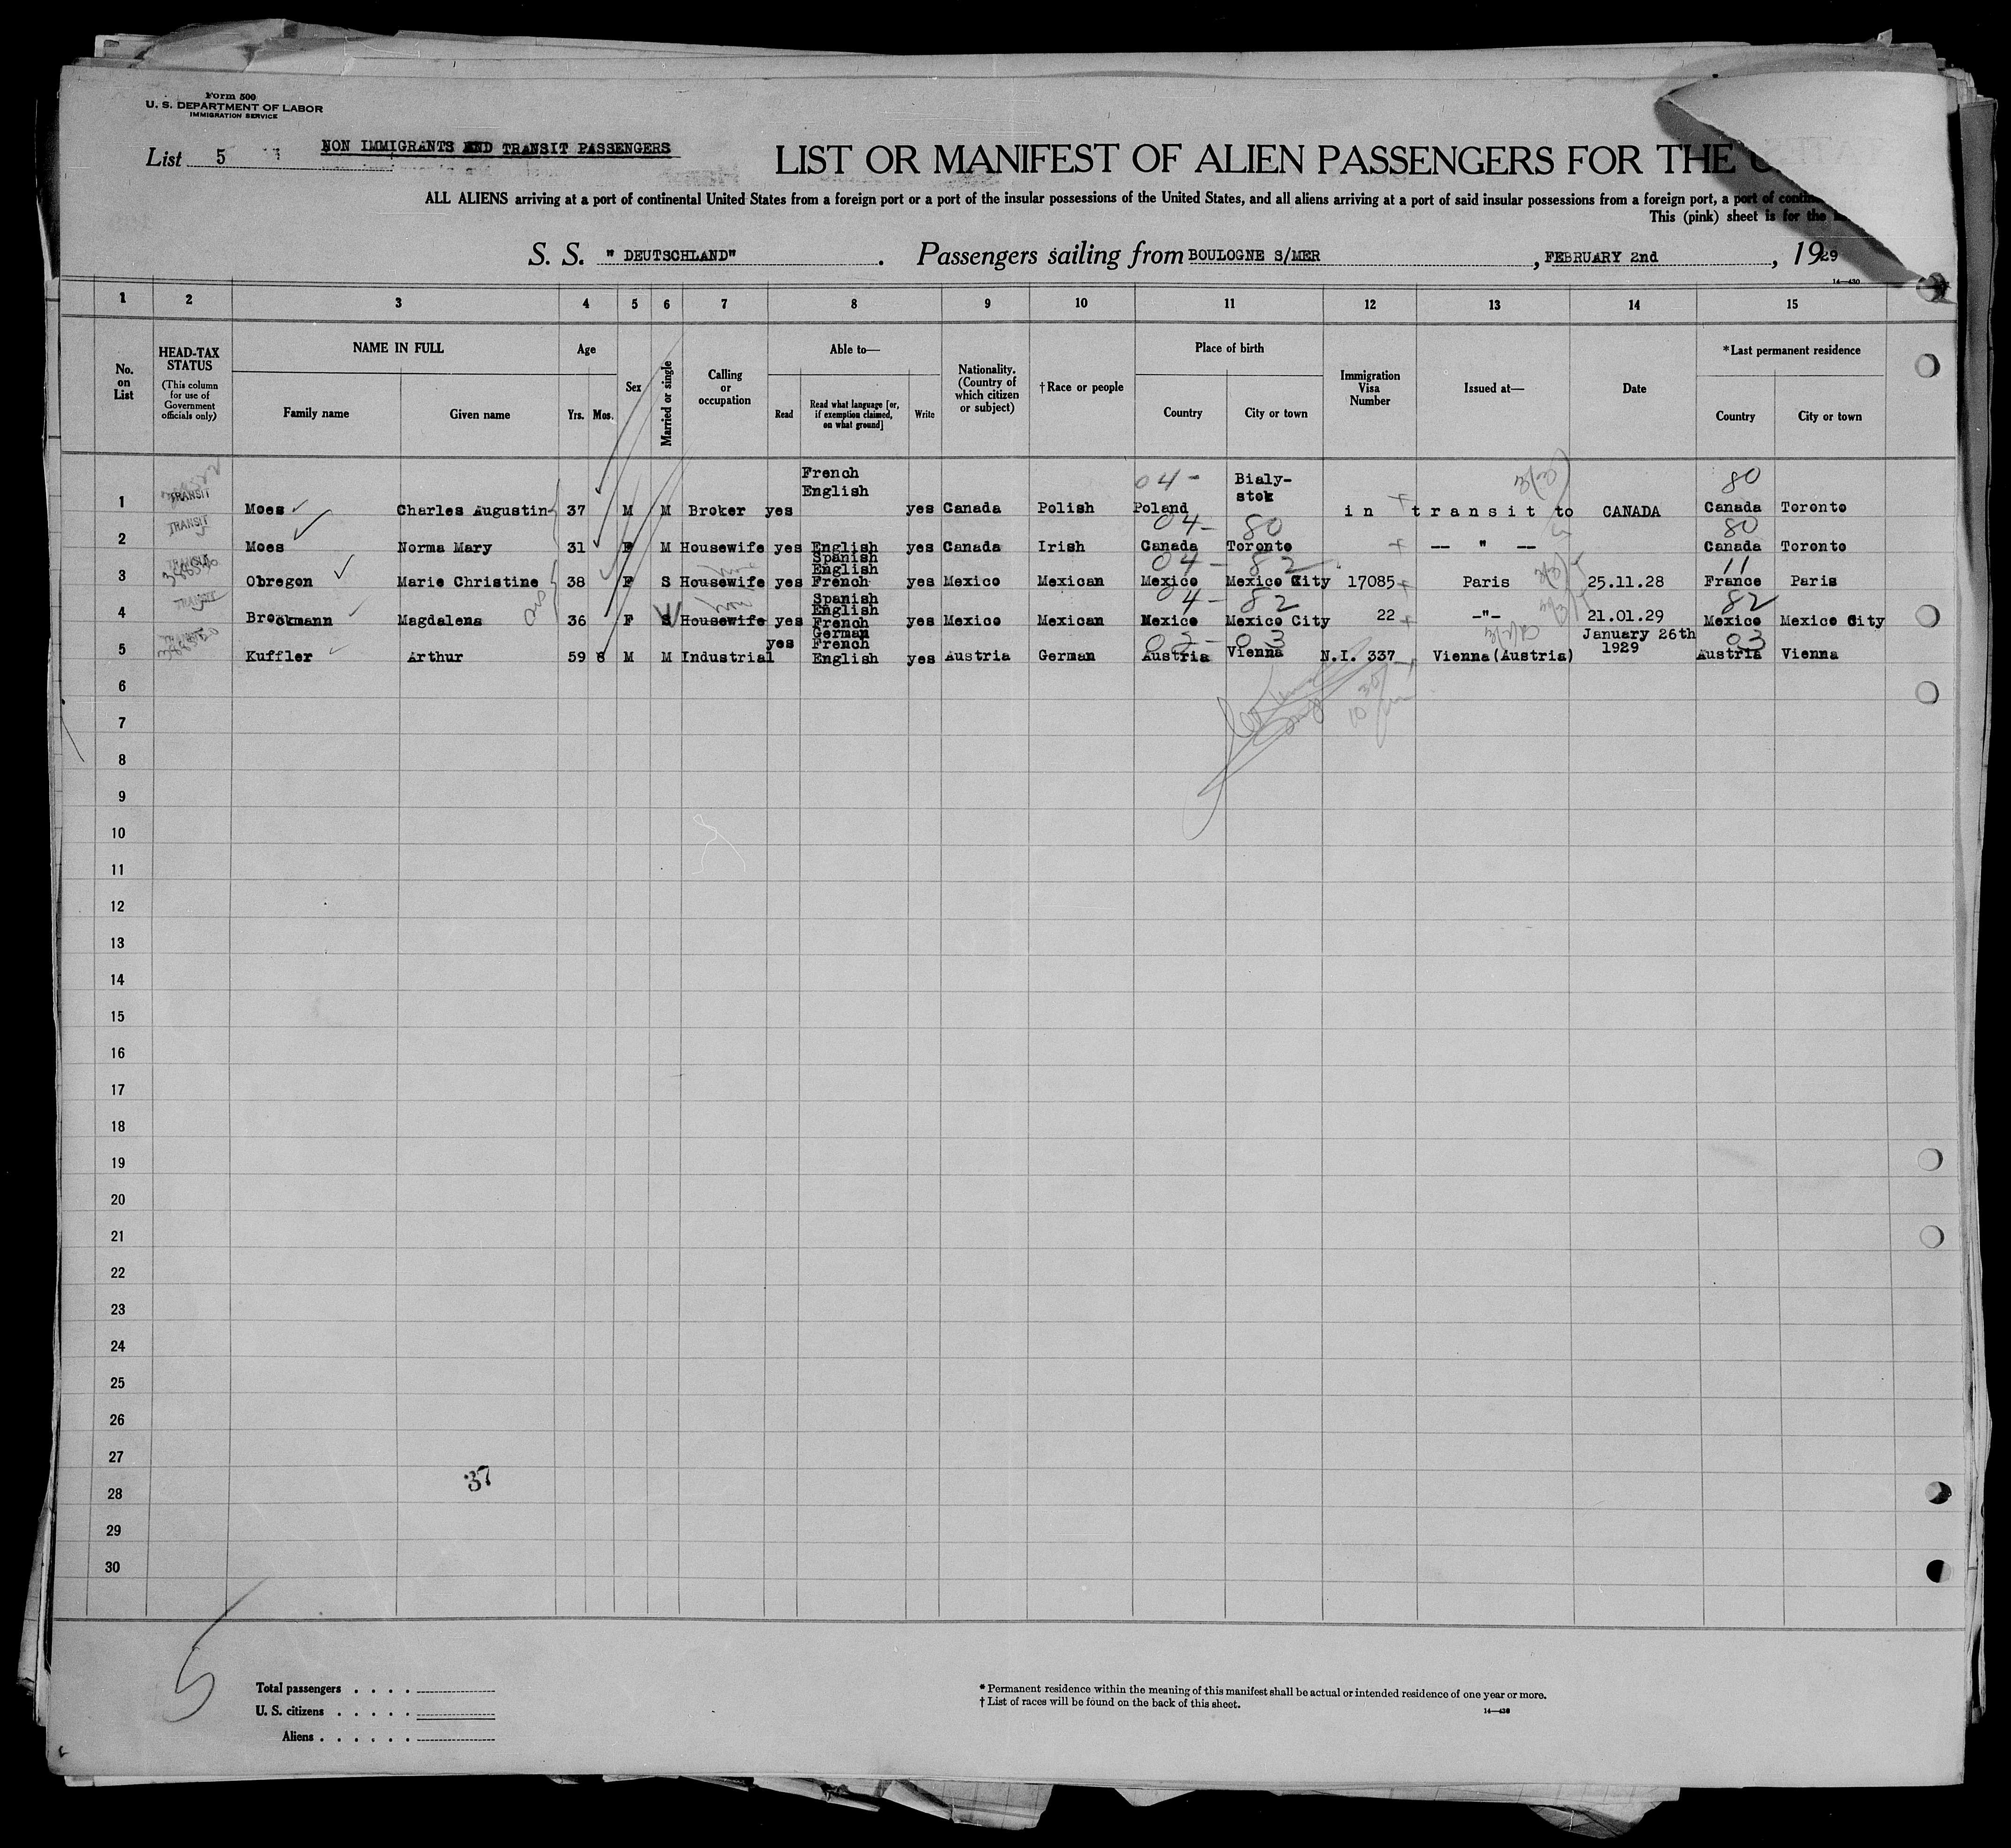 Form 500
U. S. DEPARTMENT OF LABOR
IMMIGRATION SERVICE
List 5
NON IMMIGRANTS AND TRANSIT PASSENGERS
LIST OR MANIFEST OF ALIEN PASSENGERS FOR THE
ALL ALIENS arriving at a port of continental United States from a foreign port or a port of the insular possessions of the United States, and all aliens arriving at a port of said insular possessions from a foreign port, a port of
This (pink) sheet is for the
S. S. " DEUTSCHLAND" . Passengers sailing from BOULOGNE S/MER , FEBRUARY 2nd , 1929
14—430
1 2 3 4 5 6 7 8 9 10 11 12 13 14 15
No. on List
HEAD-TAX STATUS
(This column for use of Government officials only)
NAME IN FULL
Family name Given name
Age
Yrs. Mos.
Sex
Married or single
Calling or occupation
Able to—
Read
Read what language [or, if exemption claimed, on what ground]
Write
Nationality. (Country of which citizen or subject)
†Race or people
Place of birth
Country City or town
Immigration Visa Number
Issued at—
Date
*Last permanent residence
Country City or town
1 TRANSIT Moes Charles Augustin 37 M M Broker yes French English yes Canada Polish 04- Poland Bialy-stok in transit to CANADA 80 Canada Toronto
2 TRANSIT Moes Norma Mary 31 F M Housewife yes English yes Canada Irish 04- 80 Canada Toronto — " — 80 Canada Toronto
3 TRANSIT Obregon Marie Christine 38 F S Housewife yes Spanish English French yes Mexico Mexican 04- 82 Mexico Mexico City 17085 Paris 25.11.28 11 France Paris
4 TRANSIT Brockmann Magdalena 36 F S W Housewife yes Spanish English French yes Mexico Mexican 04- 82 Mexico Mexico City 22 -"- 21.01.29 82 Mexico Mexico City
5 TRANSIT Kuffler Arthur 59 6 M M Industrial yes German French English yes Austria German 02- 03 Austria Vienna N.I. 337 Vienna (Austria) January 26th 1929 03 Austria Vienna
6
7
8
9
10
11
12
13
14
15
16
17
18
19
20
21
22
23
24
25
26
27
37
28
29
30
5
Total passengers . . . .
U. S. citizens . . . . .
Aliens . . . . . .
* Permanent residence within the meaning of this manifest shall be actual or intended residence of one year or more.
† List of races will be found on the back of this sheet.
14—430